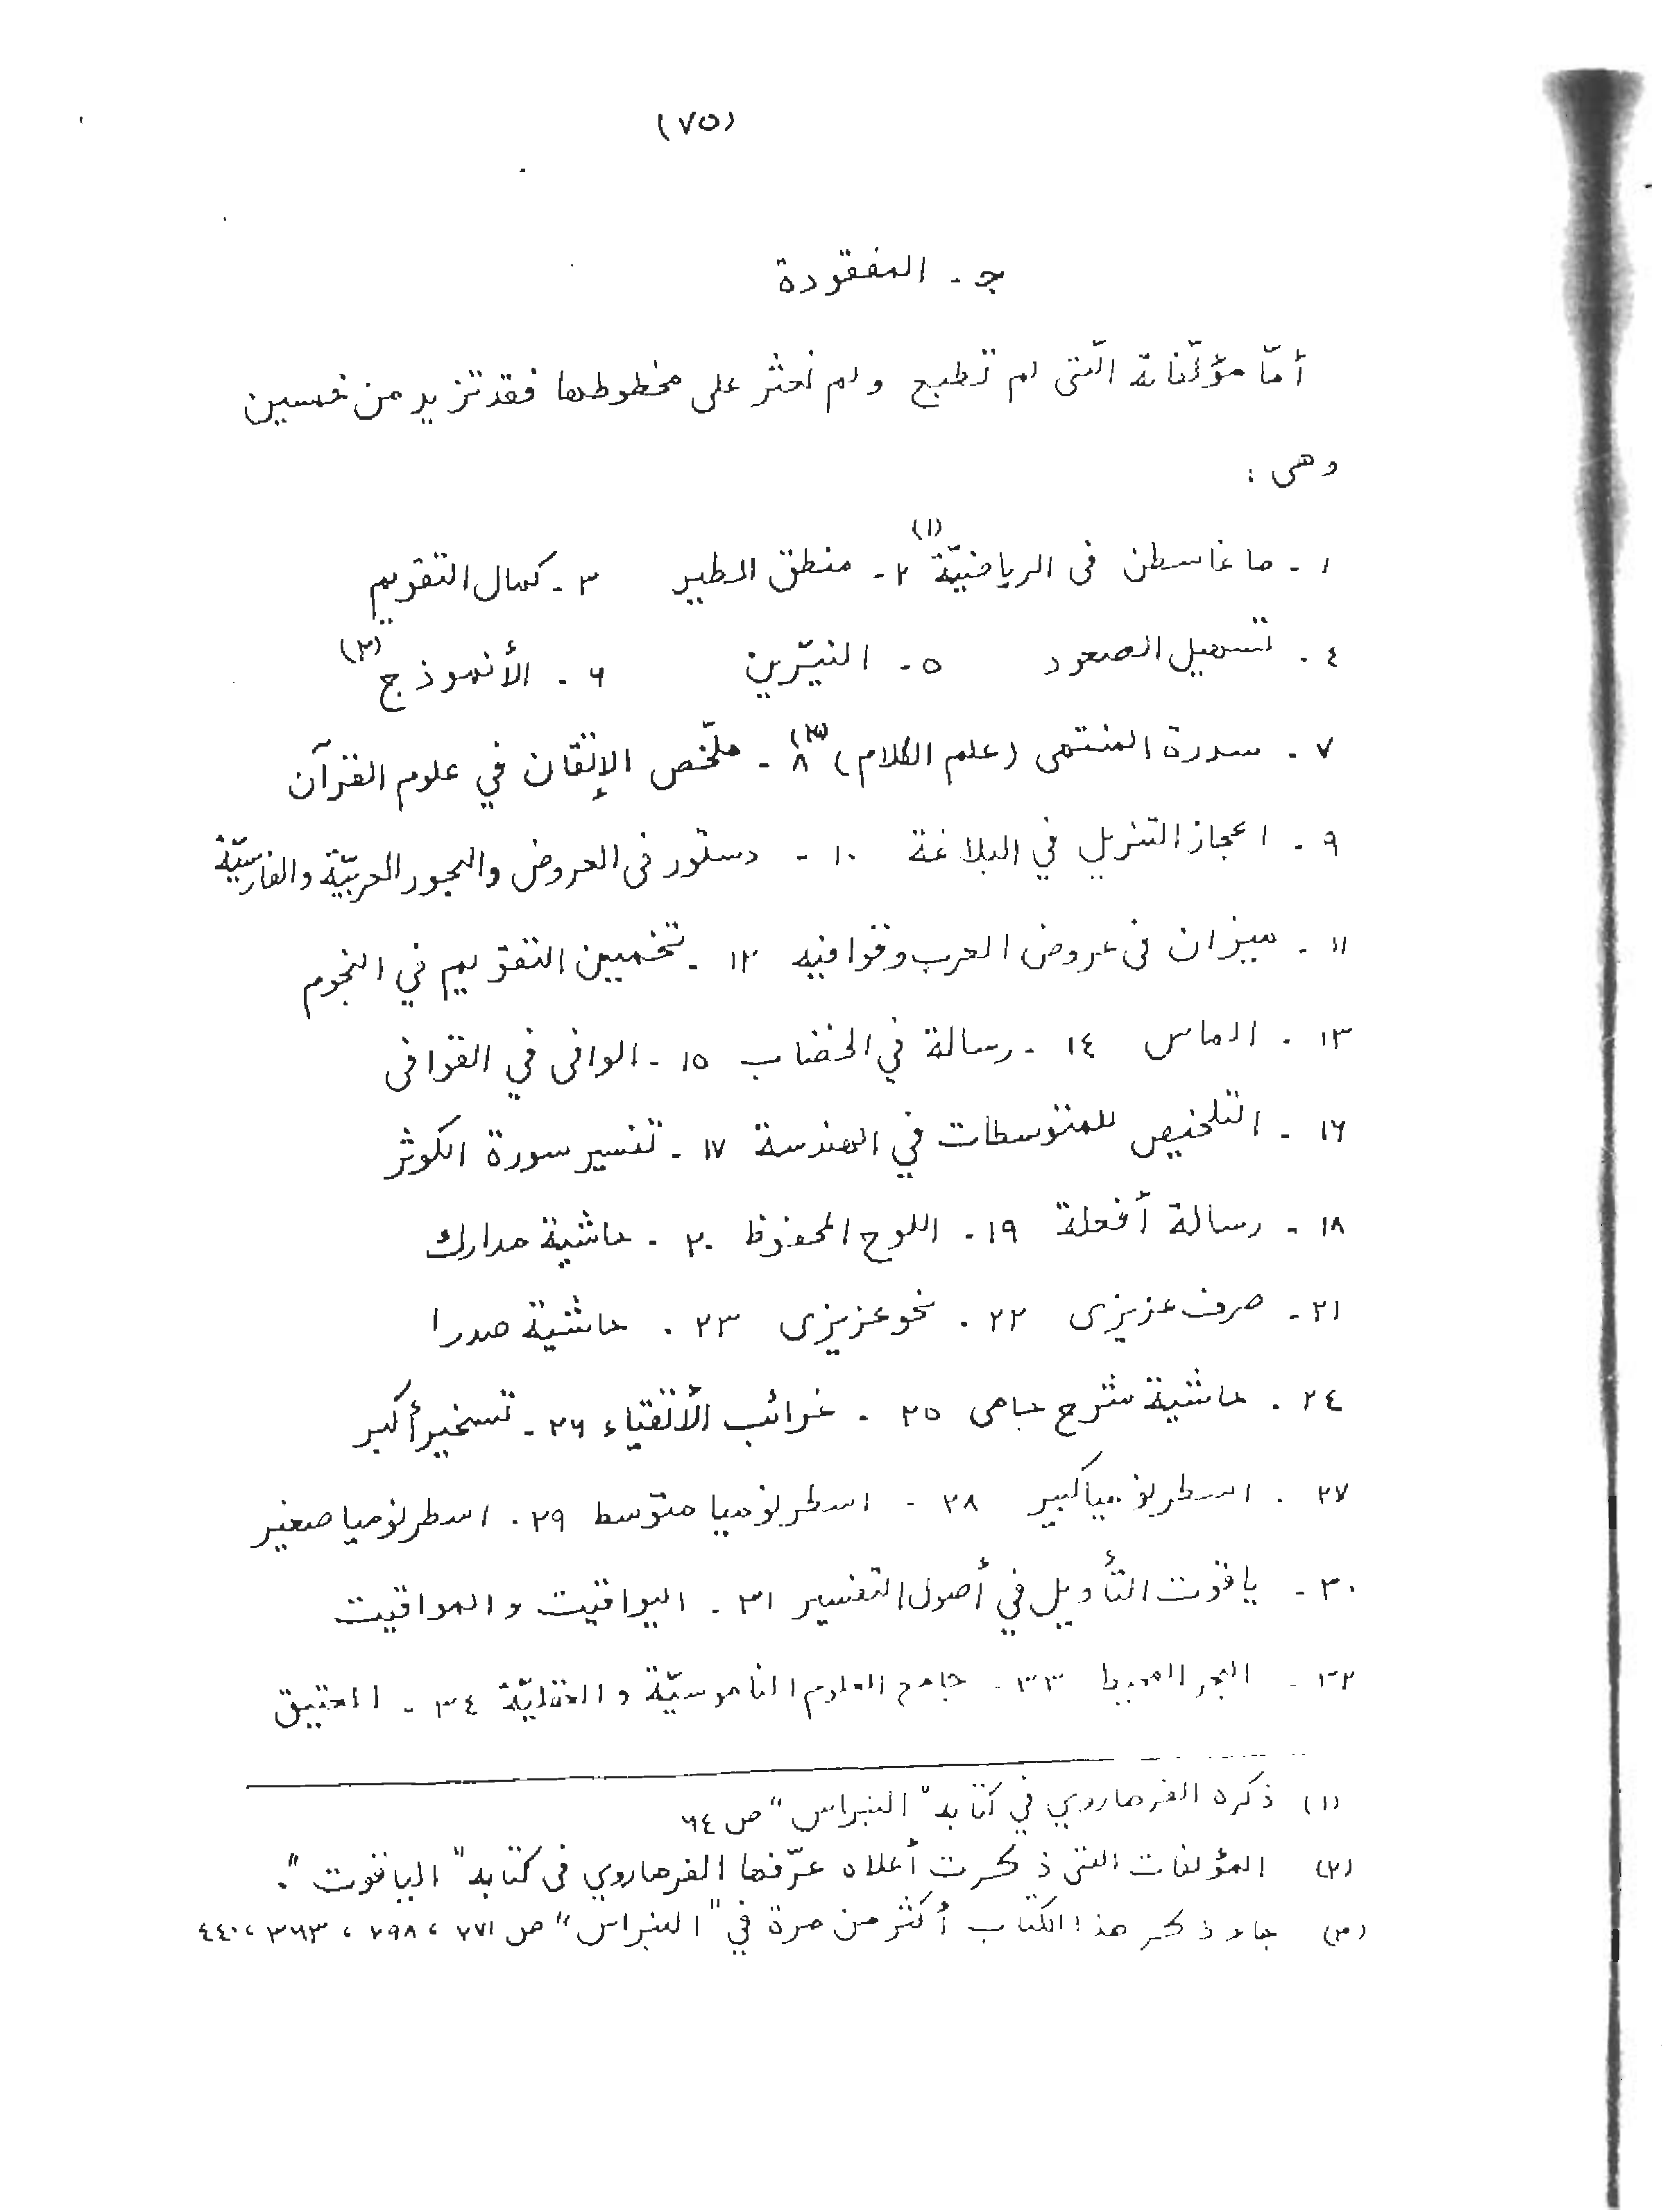 (٧٥)
ج - المفقودة
أمّا مؤلّفاته الّتى لم تطبع ولم نعثر على مخطوطها فقد تزيد من خمسين
وهى :
١ - ماغاسطن فى الرياضيّة (١) ٢ - منطق الطير ٣ - كمال التقويم
٤ - تسهيل الصعود ٥ - النيّرين ٦ - الأنموذج (٢)
٧ - سدرة المنتهى (علم الكلام) (٣) ٨ - ملخّص الإتقان في علوم القرآن
٩ - اعجاز التنزيل في البلاغة ١٠ - دستور فى العروض والبحور العربيّة والفارسيّة
١١ - ميزان فى عروض العرب وقوافيه ١٢ - تخمين التقويم في النجوم
١٣ - الماس ١٤ - رسالة في الخضاب ١٥ - الوافى في القوافى
١٦ - التلخيص للمتوسطات في الهندسة ١٧ - تفسير سورة الكوثر
١٨ - رسالة أفعلة ١٩ - اللوح المحفوظ ٢٠ - حاشية مدارك
٢١ - صرف عزيزى ٢٢ - نحو عزيزى ٢٣ - حاشية صدرا
٢٤ - حاشية شرح جامى ٢٥ - غرائب الأتقياء ٢٦ - تسخير أكبر
٢٧ - اسطرنوميا كبير ٢٨ - اسطرنوميا متوسط ٢٩ - اسطرنوميا صغير
٣٠ - ياقوت التأويل في أصول التفسير ٣١ - اليواقيت والمواقيت
٣٢ - البحر المحيط ٣٣ - جامع العلوم الناموسيّة والعقليّة ٣٤ - العتيق
(١) ذكره الفرهاروي في كتابه "النبراس" ص ٦٤
(٢) المؤلفات التى ذكرت أعلاه عرّفها الفرهاروي فى كتابه "الياقوت".
(٣) جاء ذكر هذا الكتاب أكثر من مرة في "النبراس" ص ٢٧١ ، ٢٩٨ ، ٣٦٣ ، ٤٤٠